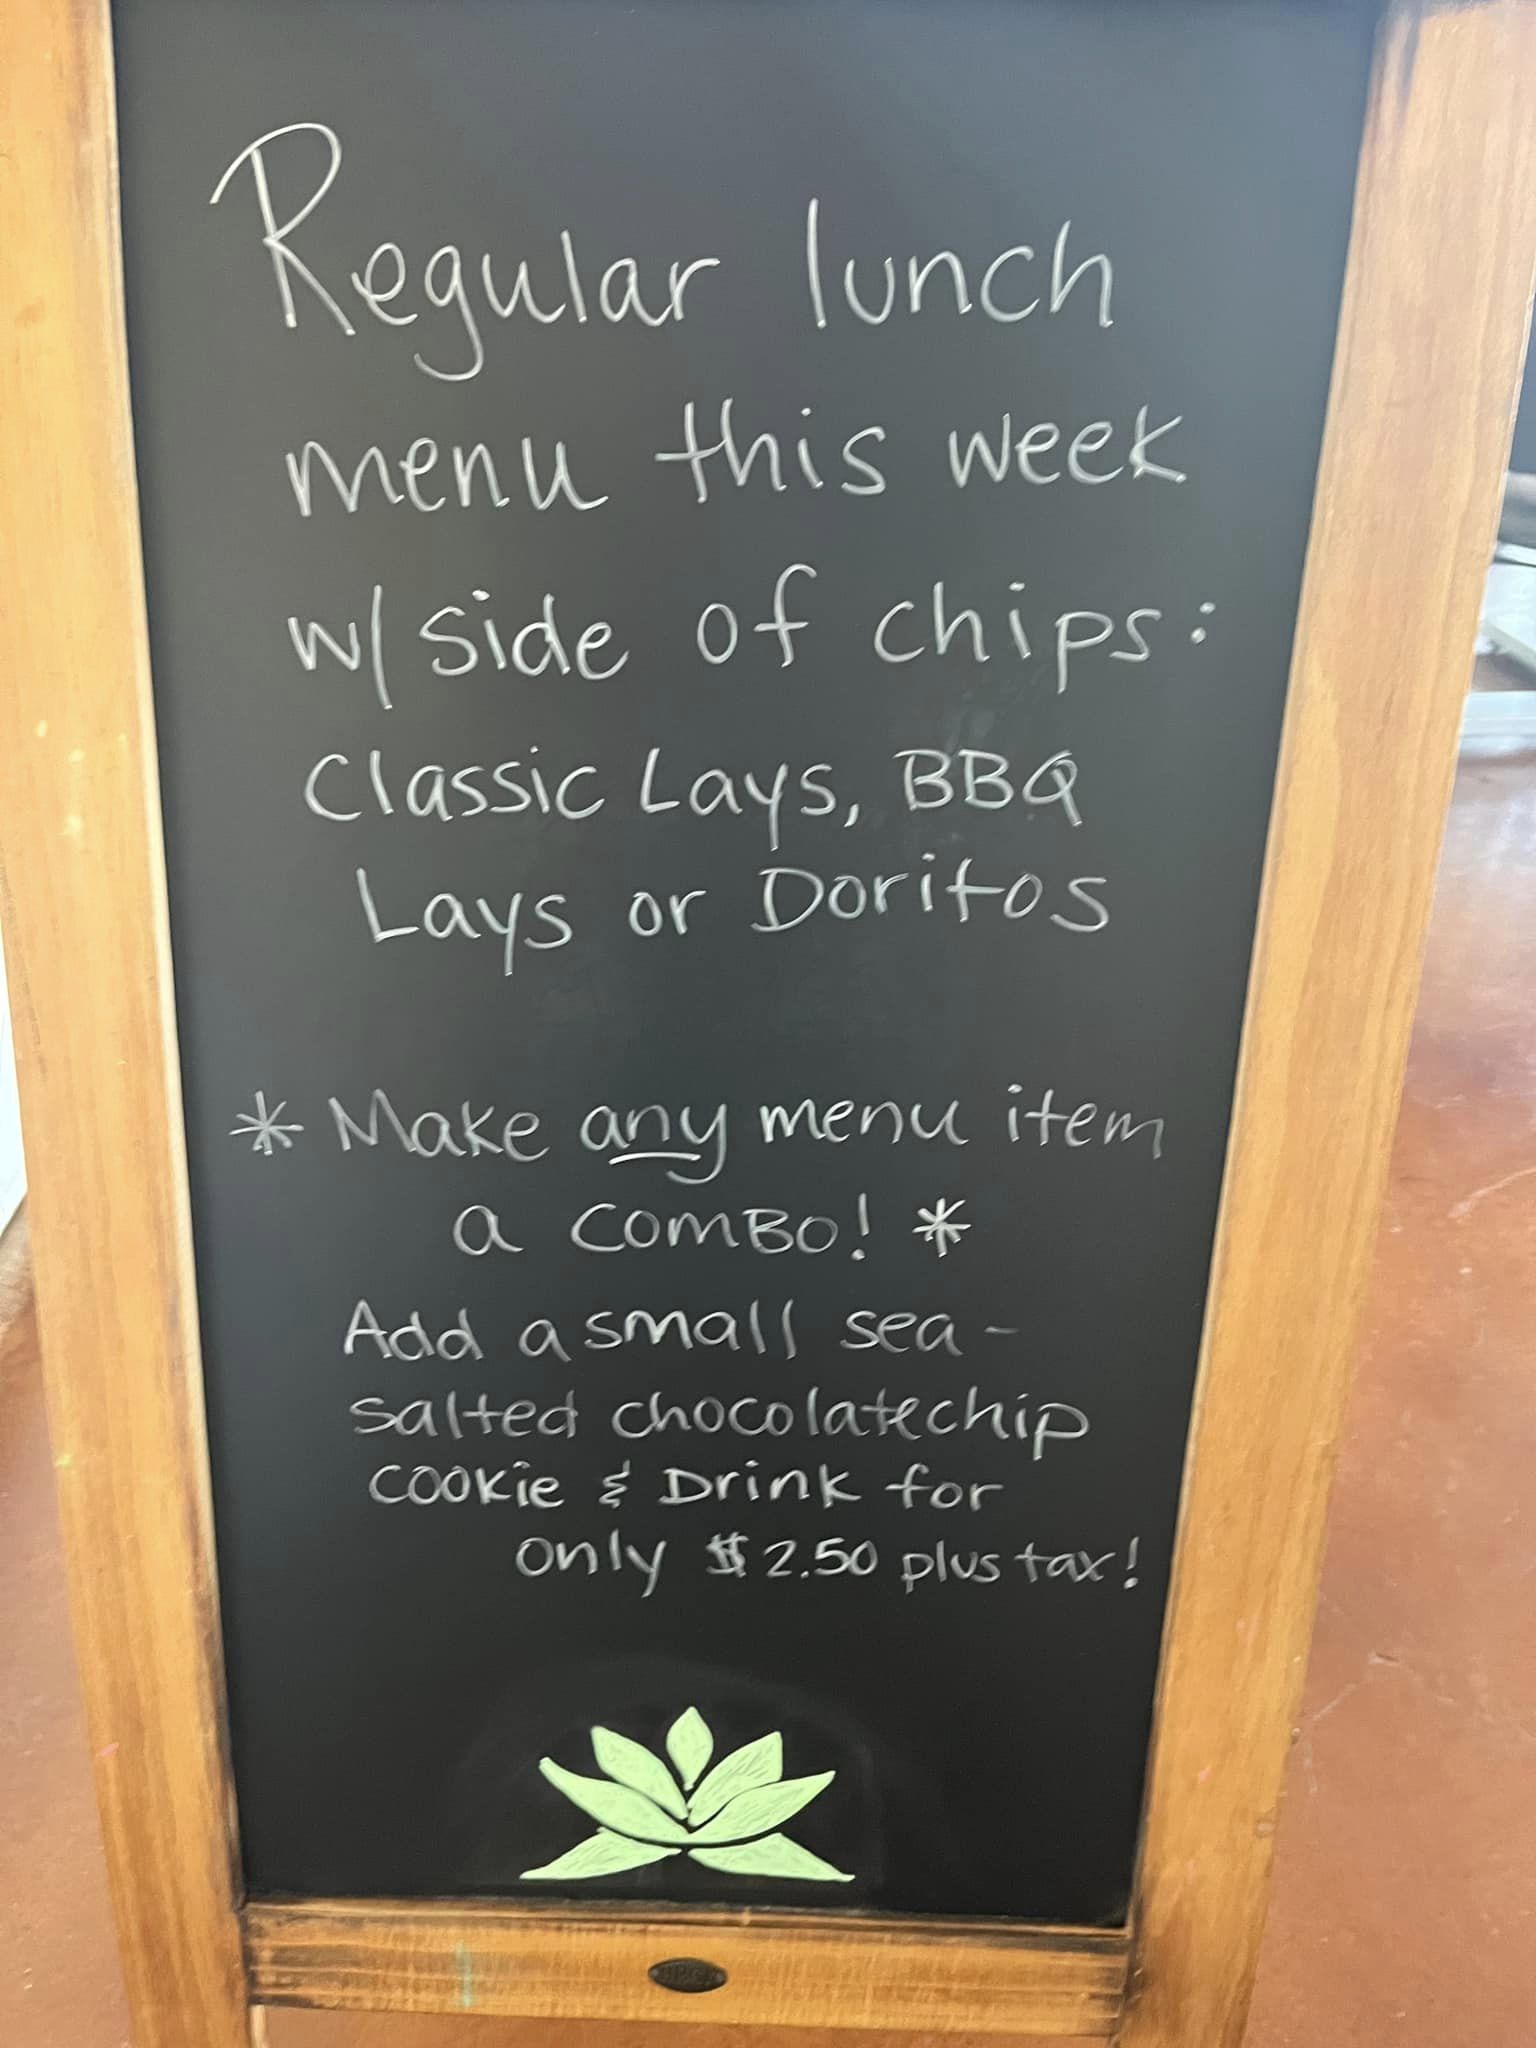 Regular lunch
menu this week
w/ side of chips:
Classic Lays, BBQ
Lays or Doritos
* Make any menu item
a COMBO! *
Add a small sea-
salted chocolate chip
cookie & Drink for
only $2.50 plus tax!